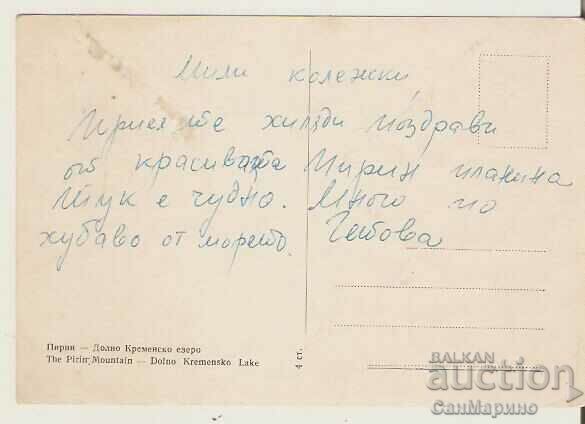 Мили колежки,
Приемете хиляди поздрави
от красивата Пирин планина
Тук е чудно. Много по
хубаво от морето.
Пирин — Долно Кременско езеро
The Pirin Mountain — Dolno Kremensko Lake
4 ст.
BALKAN
auction
СанМарино